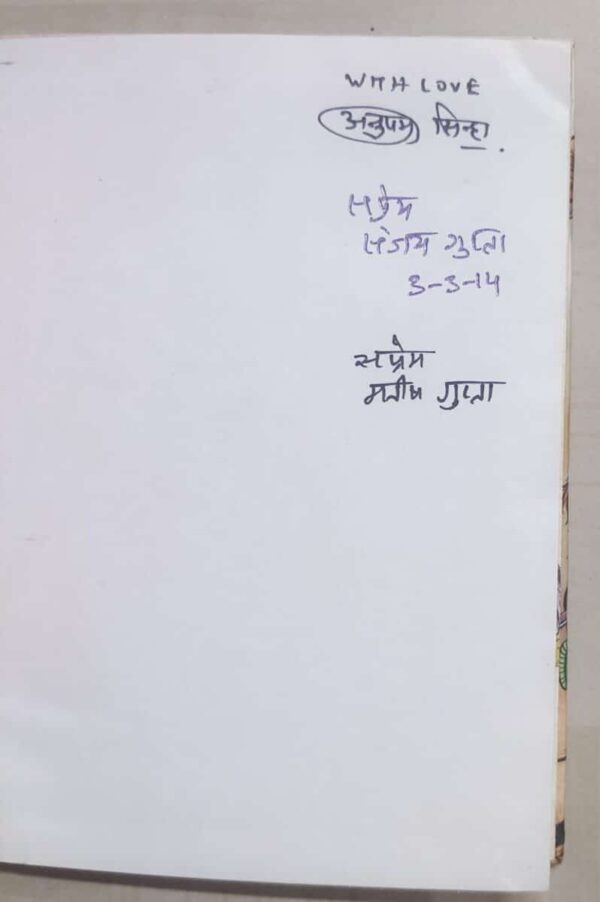 WITH LOVE
अनुपम सिन्हा.
सप्रेम
संजय गुप्ता
3-3-14
सप्रेम
मनीष गुप्ता